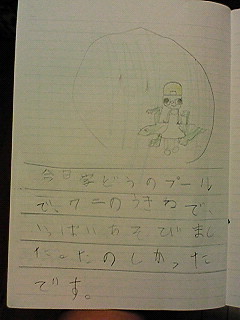 今日ぶどうのプール
で、ワニのうきわで、
いっぱいあそびまし
た。たのしかった
です。